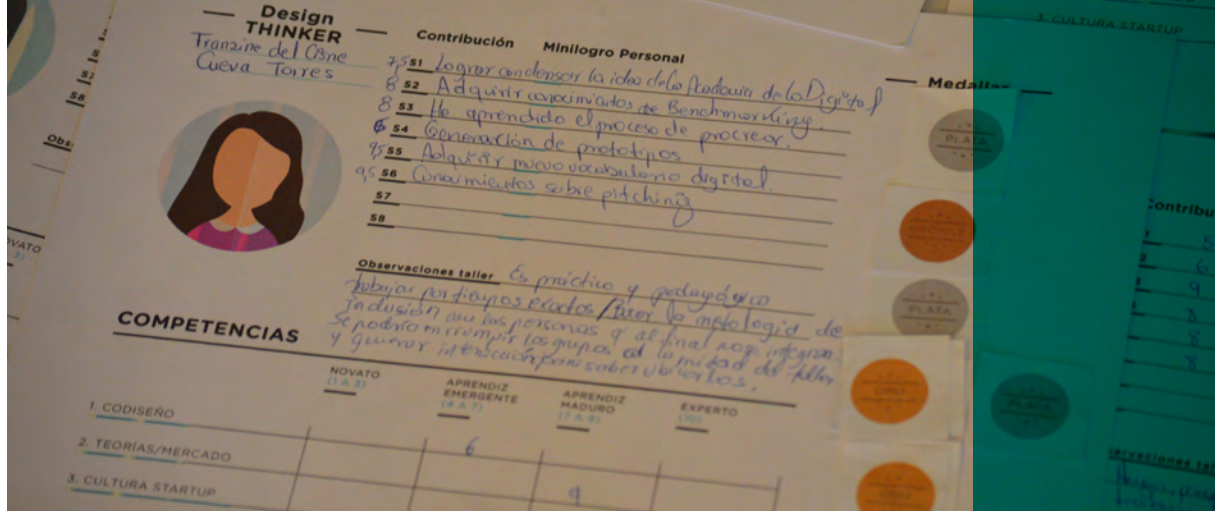 Design
THINKER
Tranzine del Cisne
Cueva Torres
Contribución Minilogro Personal
7,5 S1 Lograr condensar la idea de la Academia de lo Digital
8 S2 Adquirir conocimientos de Benchmarking.
8 S3 He aprendido el proceso de procrear.
8 S4 Generación de prototipos
9,5 S5 Adquirir nuevo vocabulario digital.
9,5 S6 Conocimientos sobre pitching
S7
S8
Observaciones taller Es práctico y pedagógico
trabajar por tiempos exactos / la metologia de
Inclusión con las personas q al final no se integran.
Se podría interrumpir los grupos a la mitad del taller
y generar interacción para saber ubicarlos.
COMPETENCIAS
NOVATO
(1 A 3)
APRENDIZ
EMERGENTE
(4 A 7)
APRENDIZ
MADURO
(7 A 9)
EXPERTO
(10)
1. CODISEÑO
2. TEORÍAS/MERCADO 6
3. CULTURA STARTUP 9
Medallas
PLATA
BRONCE
PLATA
ORO
ORO
PLATA
3. CULTURA STARTUP
Contribu
5
6
9
8
8
8
ervaciones tal
S8
Obs
OVATO